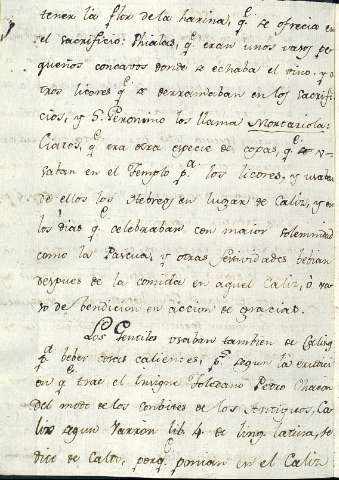 tener la flor de la harina, q.e se ofrecia en
el sacrificio: Phialas, q.e eran unos vasos pe
queños concavos donde se echaba el vino, y o
tros licores q.e se derramaban en los sacrifi
cios, y S. Geronimo los llama Mortariola:
Ciatos, q.e era otra especie de copas, q.e se v-
saban en el Templo p.a los licores, y usaban
de ellos los Hebreos en lugar de Caliz, y en
los dias q.e celebraban con maior solemnidad
como la Pascua, y otras festividades bebian
despues de la comida en aquel Caliz, ò va-
so de bendicion en accion de gracias.
Los Gentiles usaban tambien de Calices
p.a beber cosas calientes, p.s segun la
on q.e trae el insigne Toledano Petro Chacon
del modo de los combites de los Antiguos, Ca
liz segun Varron lib. 4. de ling. latina, se
dice de Caldo, porq.e ponian en el Caliz